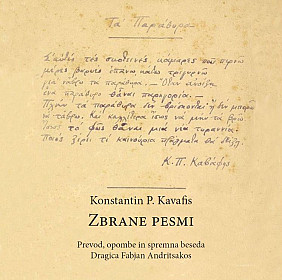 Τα Παράθυρα
Σ' αυτές τες σκοτεινές κάμαρες που περνώ
μέρες βαρυές επάνω κάτω τριγυρνώ
για νάβρω τα παράθυρα. — Όταν ανοίξει
ένα παράθυρο θάναι παρηγορία.
Πλην τα παράθυρα δεν βρίσκονται ή δεν μπορώ
να τάβρω. Και καλλίτερα ίσως να μην τα βρω
Ίσως το φως θάναι μια νέα τυραννία.
Ποιος ξέρει τι καινούρια πράγματα θα δείξει.
Κ. Π. Καβάφης
Konstantin P. Kavafis
ZBRANE PESMI
Prevod, opombe in spremna beseda
Dragica Fabjan Andritsakos